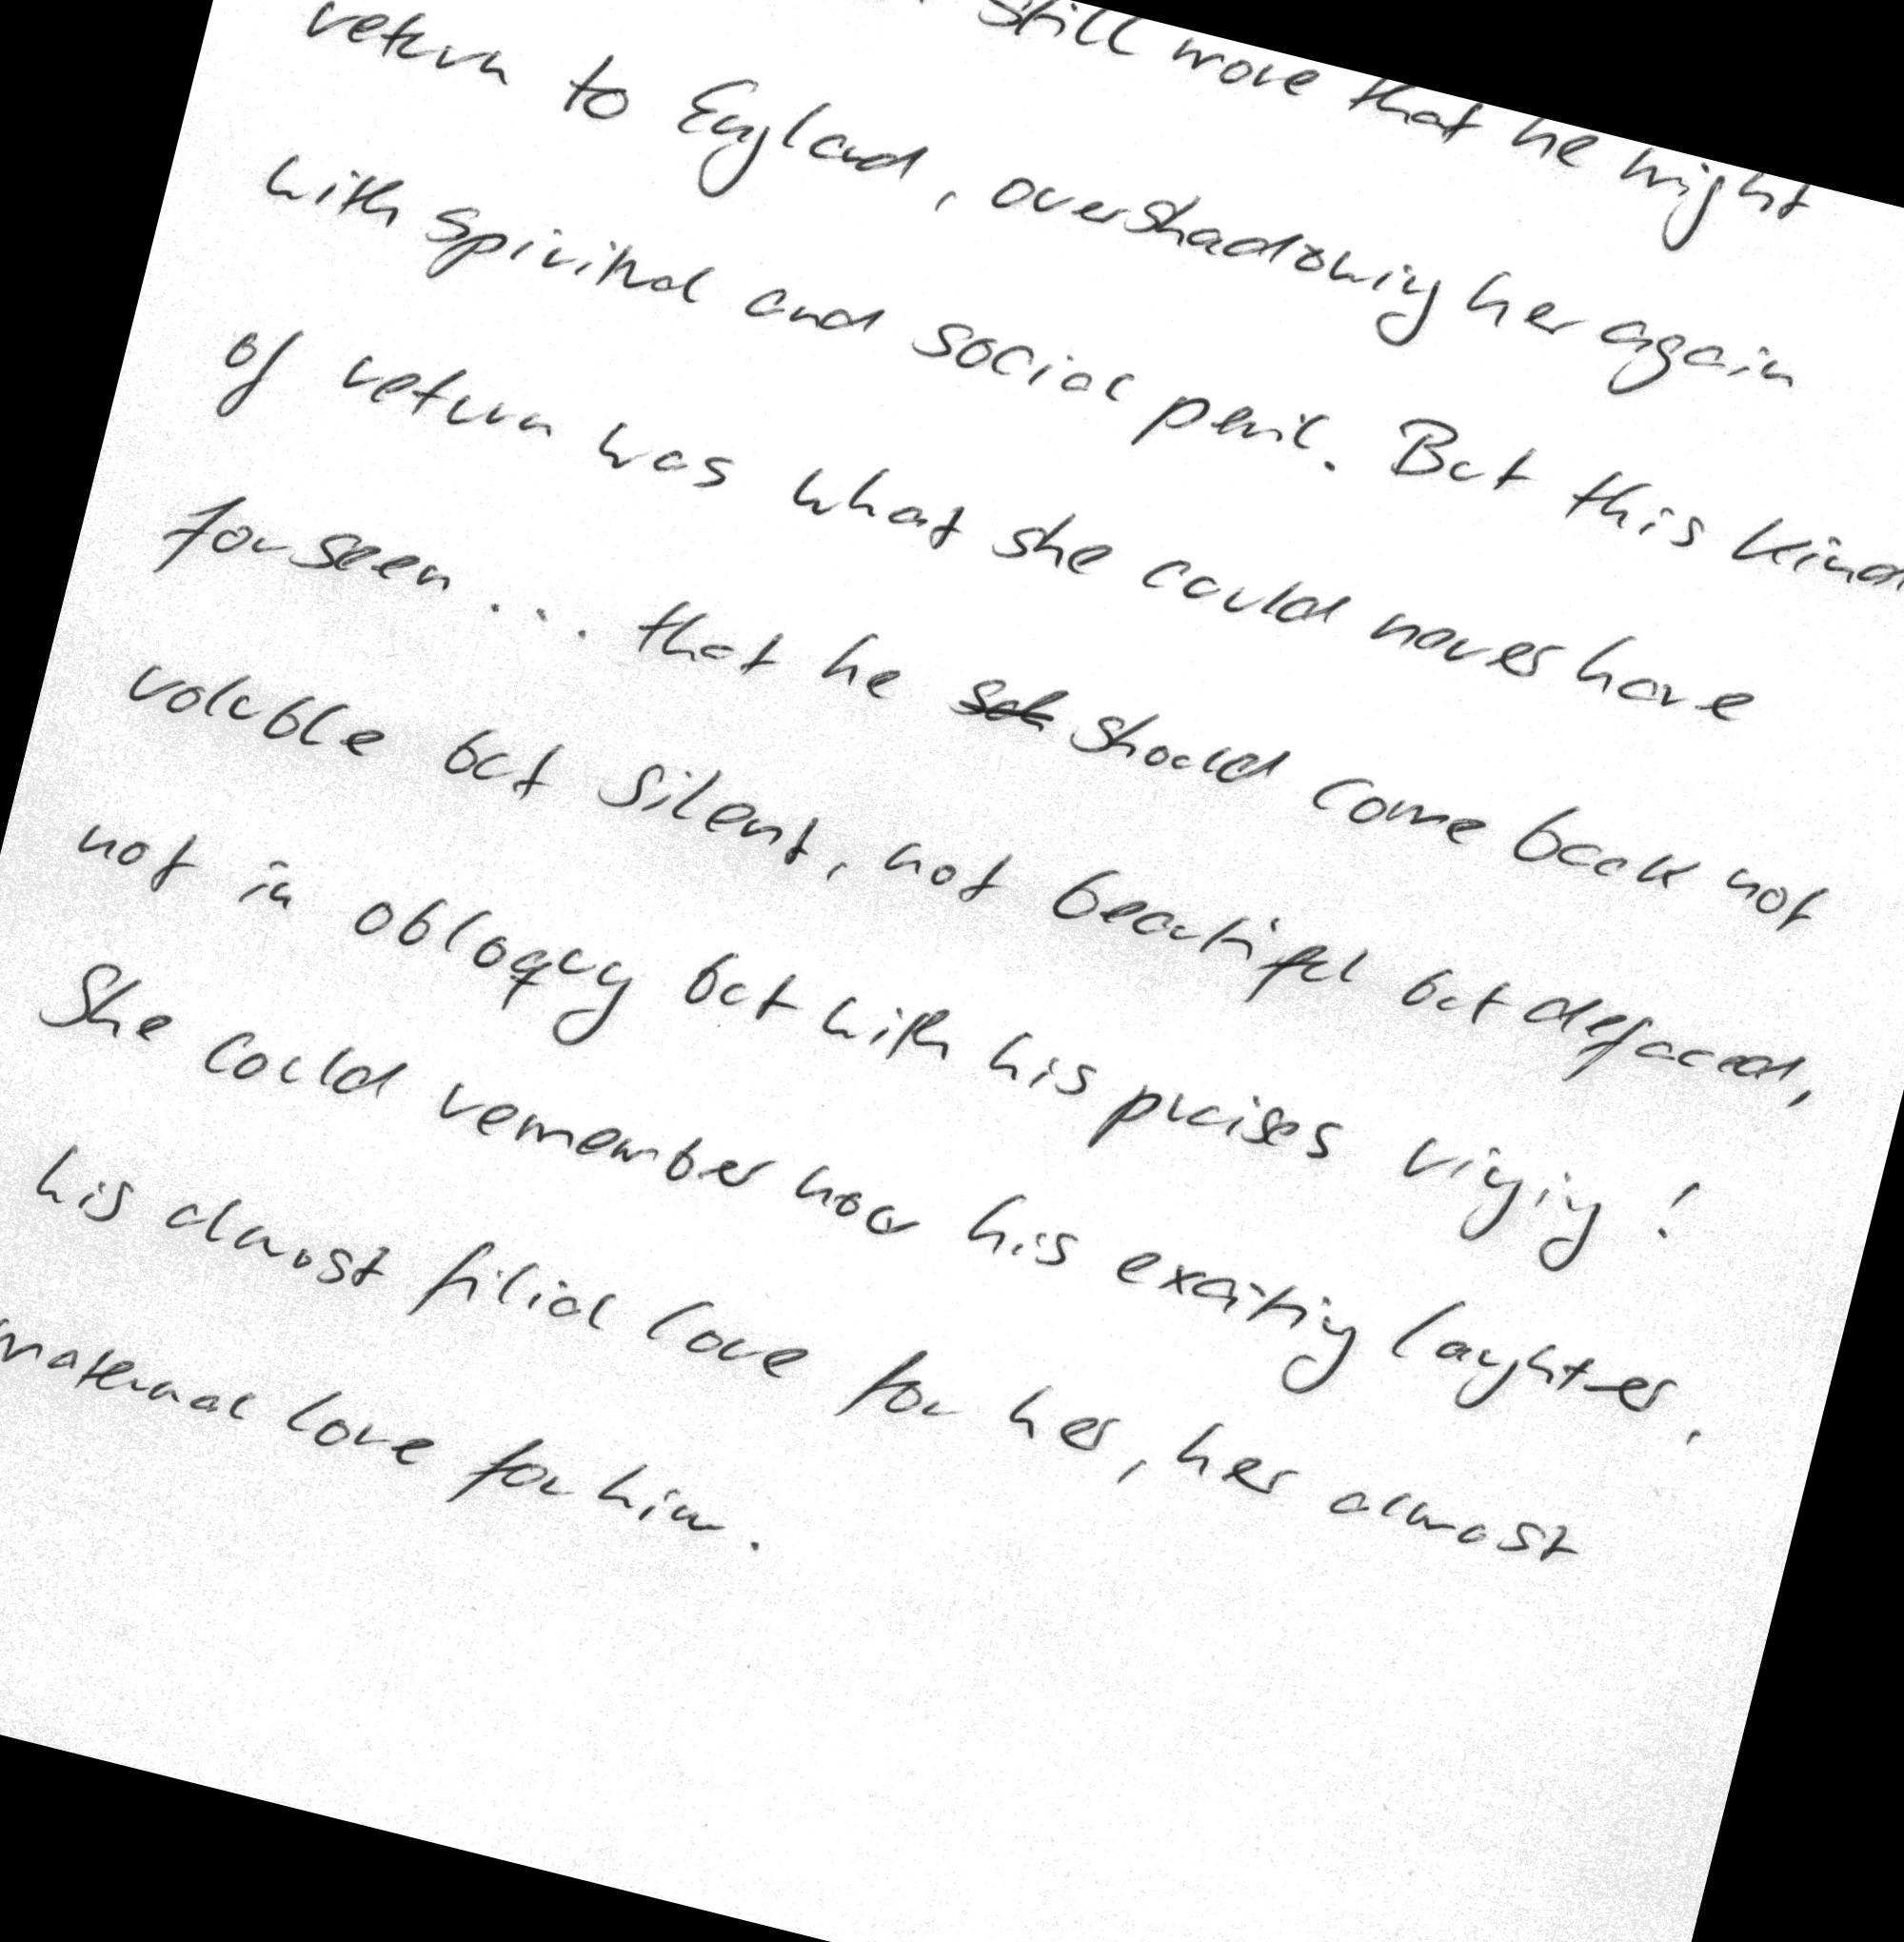 still more that he might
return to England, overshadowing her again
with spiritual and social peril. But this kind
of return was what she could never have
forseen ... that he should come back not
voluble but silent, not beautiful but defaced,
not in obloquy but with his praises ringing!
She could remember how his exciting laughter,
his almost filial love for her, her almost
maternal love for him.